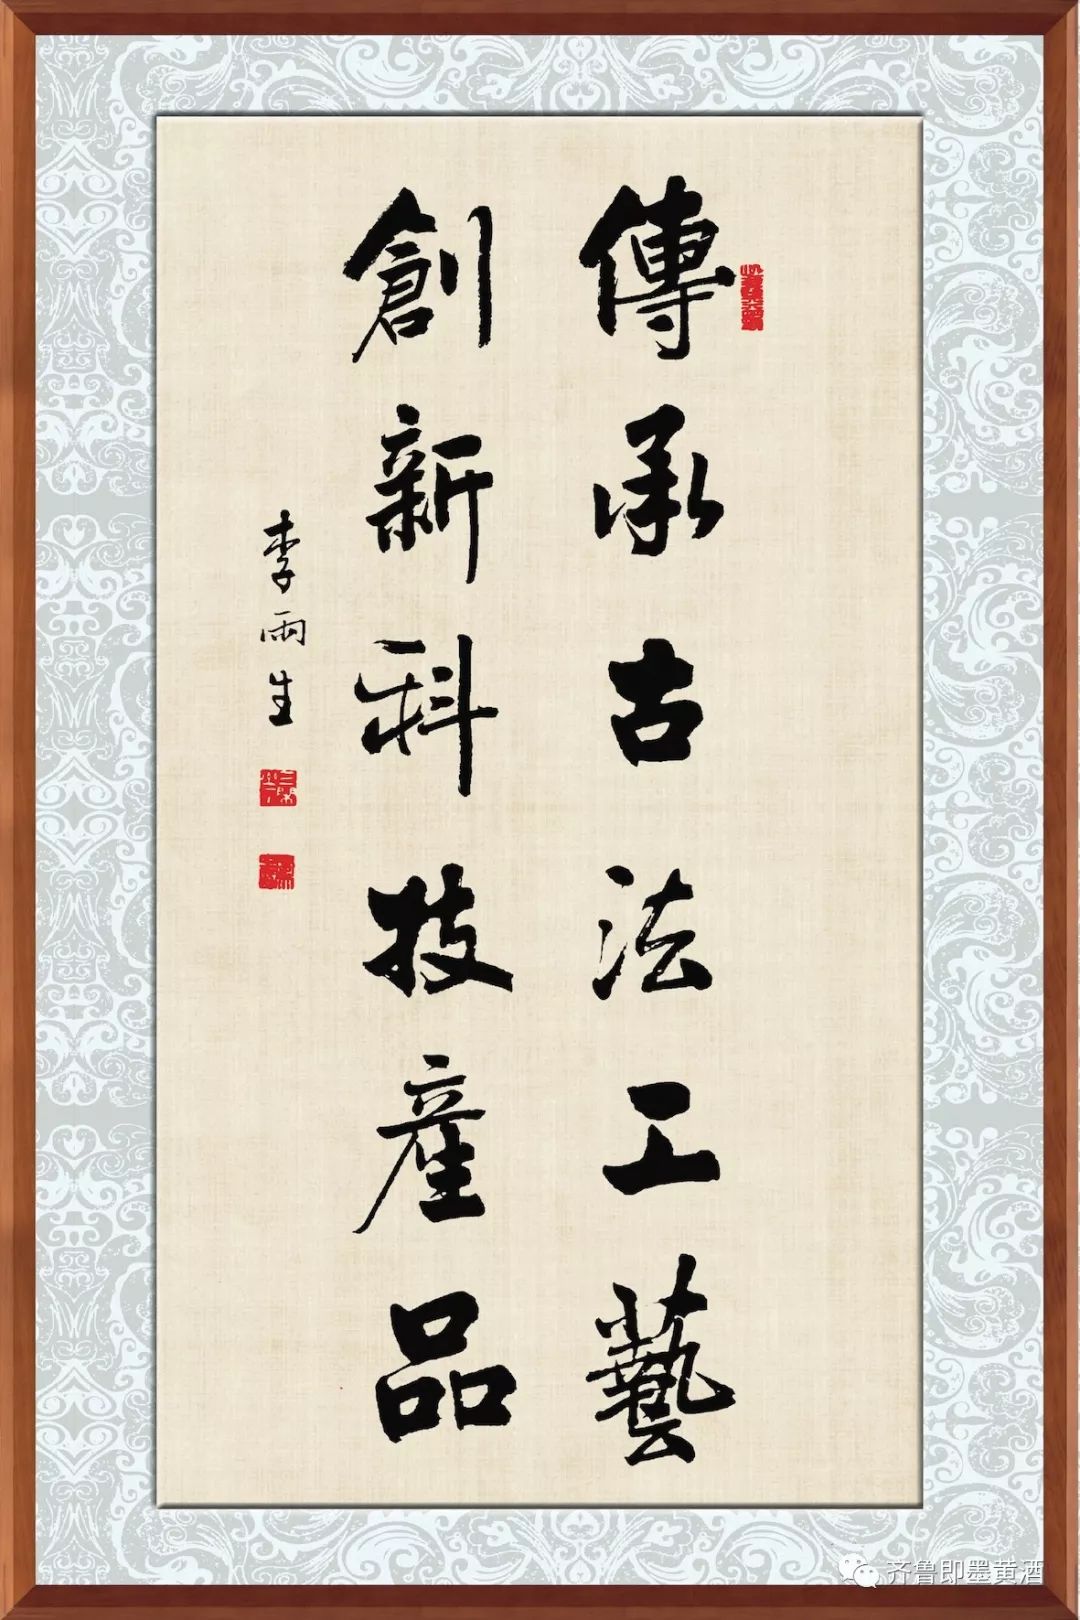 傳承古法工藝
創新科技產品
李雨生
齐鲁即墨黄酒